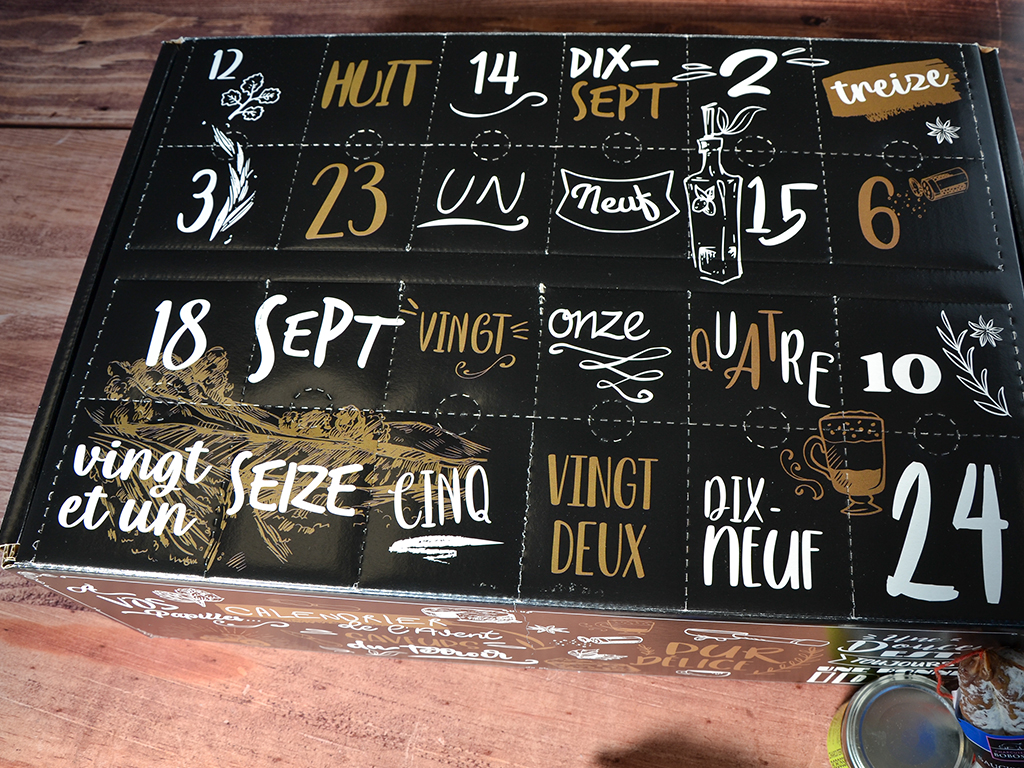 12
HUIT
14
DIX-
SEPT
2
treize
3
23
UN
Neuf
15
6
18
SEPT
VINGT
onze
QUATRE
10
vingt
et un
SEIZE
CINQ
VINGT
DEUX
DIX-
NEUF
24
À
VOS
papilles...
CALENDRIER
de l'Avent
du terroir
PUR
DÉLICE
TOUJOURS